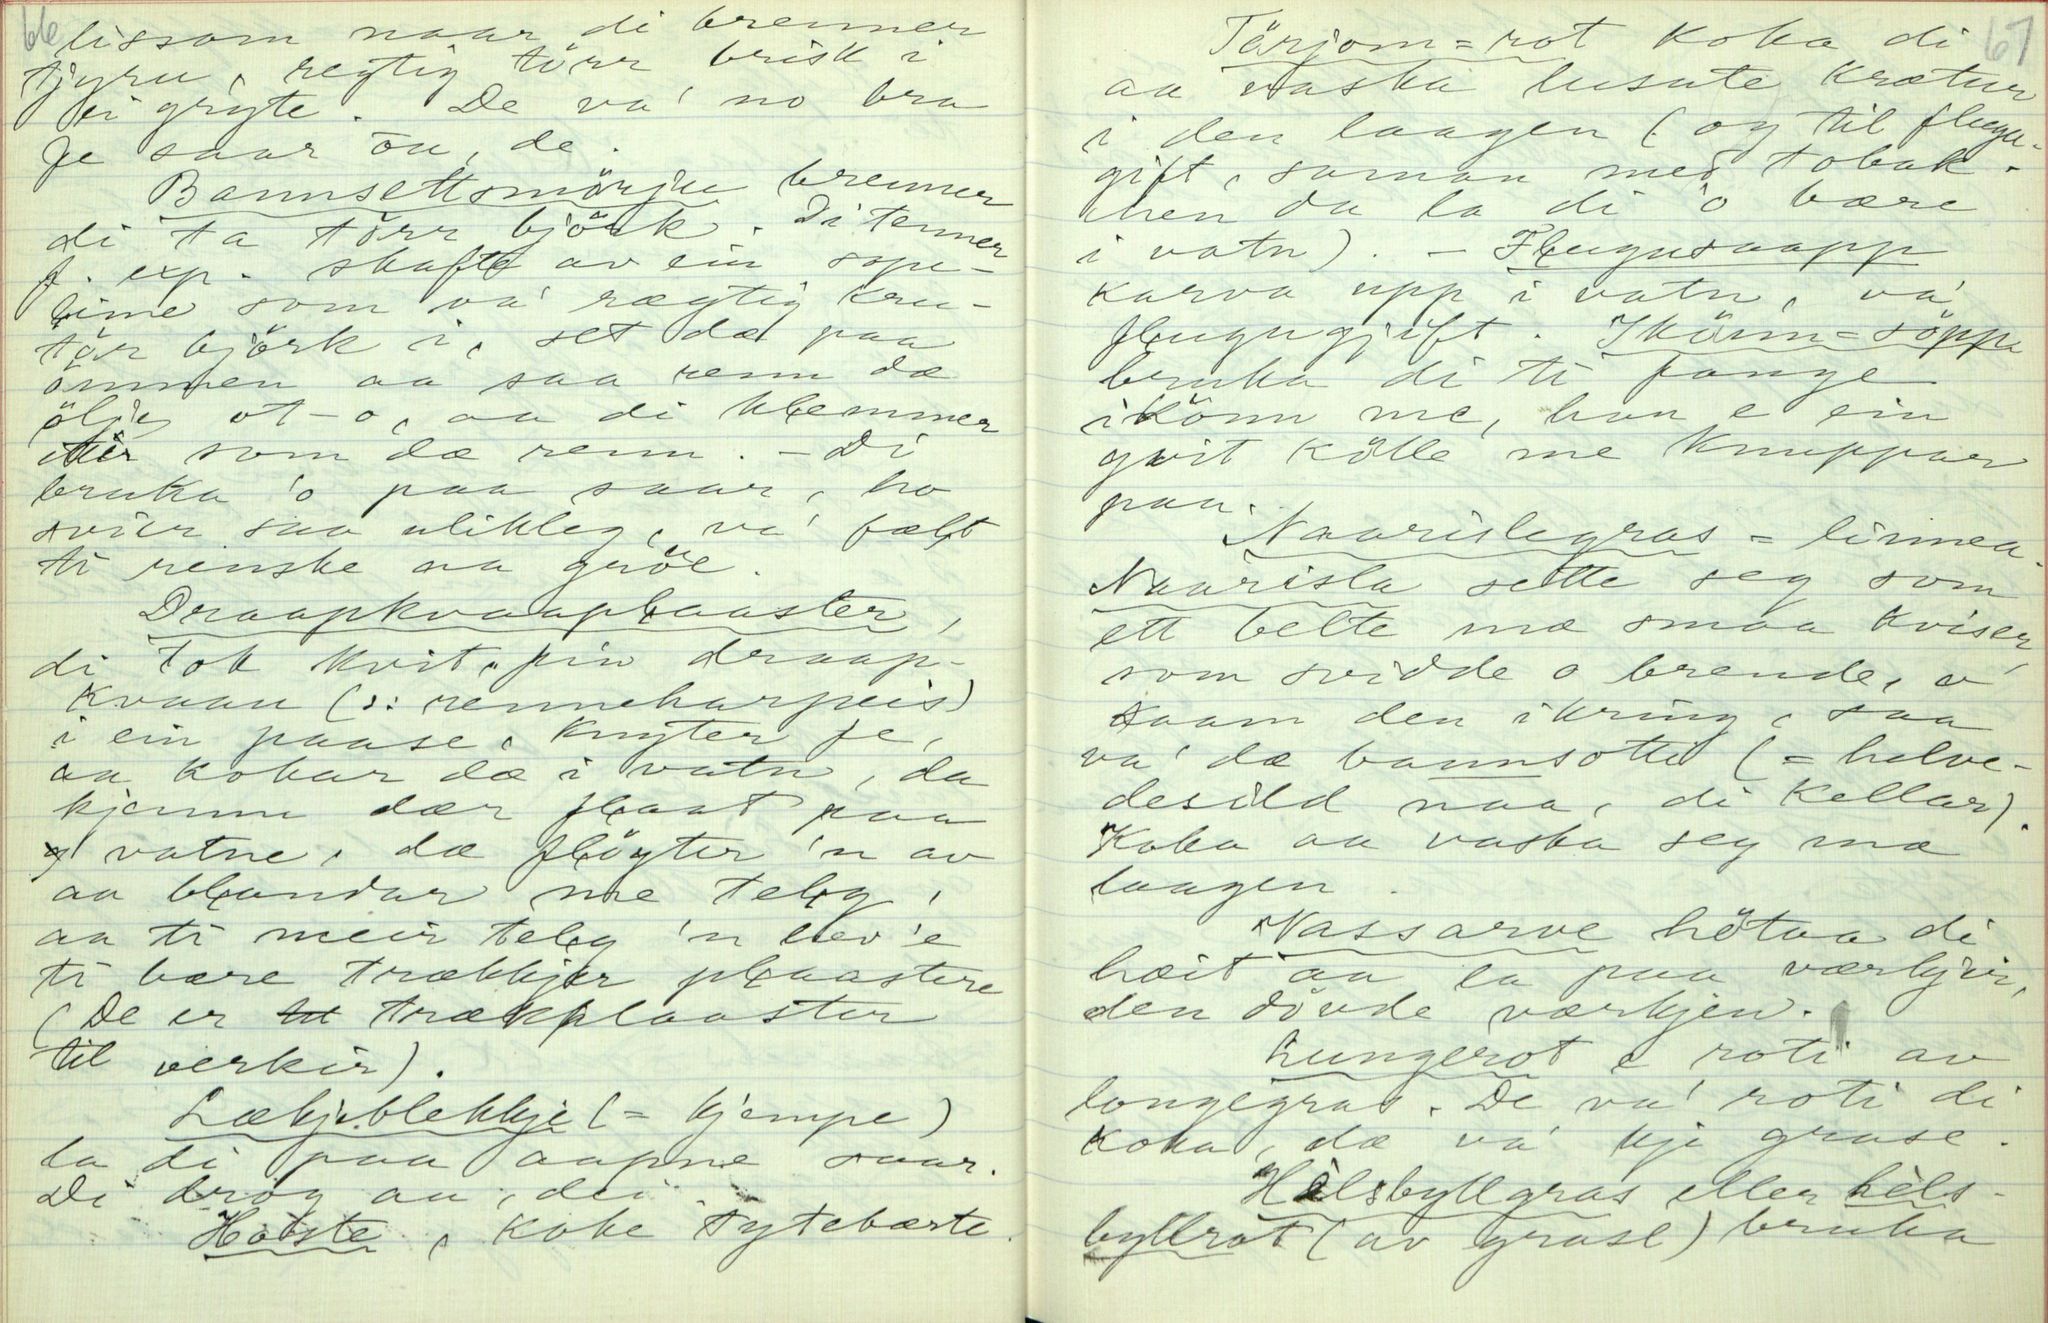 66
lissom naar di brenner
tjyru, regtig törr brisk i
ei gryte. De va' no bra
fe saar ou, de.
Bannsettsmörju brenner
di ta törr björk. Di tenner
f. exp. skaft av ein sope-
lime som va' rægtig kru-
tör björk i, set dæ paa
ömmen aa saa renn dæ
ölje ot-o, aa di klemmer
itir som dæ renn. - Di
bruka 'o paa saar, ho
svier saa ulikleg, va' fælt
ti renske aa gröe.
Draapkvaaplaaster,
di tok kvit, fin draap-
kvaau (ɔ: renneharpeis)
i ein paase, knyter fe,
aa kokar dæ i vatn, da
kjemm dær flaat paa
vatne, dæ flöyter 'n av
aa blandar me telg,
aa ti meir telg 'n hev 'e
ti bære trækkjer plaastere
(De er trækplaaster
til verkir).
Lækjeblekkje (= kjempe)
la di paa aapne saar.
Di drog au, dei.
Hoste, koke tytebærte.
67
Tärjom=rot koka di
aa vaska lusute krætur
i den laagen (og til flugu-
gift, saman med tobak.
men da la di 'o bære
i vatn). - Flugusaapp
karva upp i vatn, va'
flugugjift. Ikönn=söppa
bruka di ti fange
ikönn me, han e ein
gvit kölle me knuppar
paa.
Naarislegras = linnea.
Naarisla sette seg som
ett belte mæ smaa kviser,
som svidde o brende, o
saam den ikring, saa
va' dæ bannsotti (= helve-
desild naa, di kellar).
Koka aa vaska seg mæ
laagen.
Vassarve hötaa di
hæit aa la paa værkjir,
den döude værkjen.
Lungerot e roti av
longegras. De va' roti di
koka, dæ va' kji grase.
Helsbyllgras eller hels-
byllrot (av grase) bruka